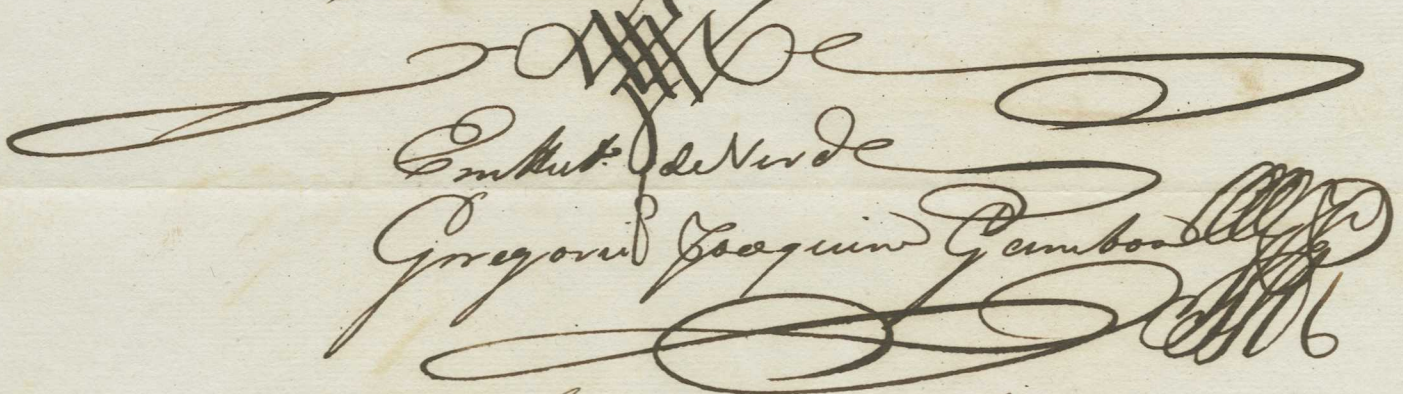 Em testº de Verde
Gregorio Joaquim Gamboa